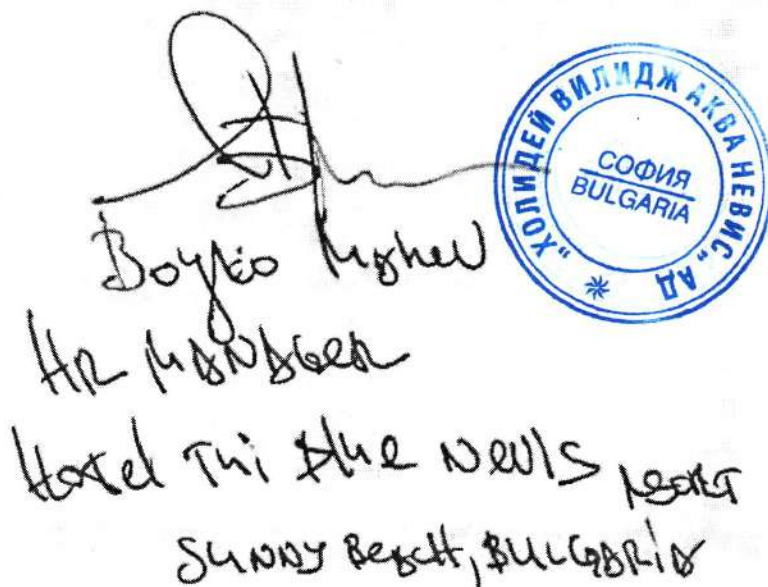 „ХОЛИДЕЙ ВИЛИДЖ АКВА НЕВИС“ АД
СОФИЯ
BULGARIA
Boyko
HR MANAGER
Hotel Tui Blue Nevis Resort
SUNNY BEACH, BULGARIA